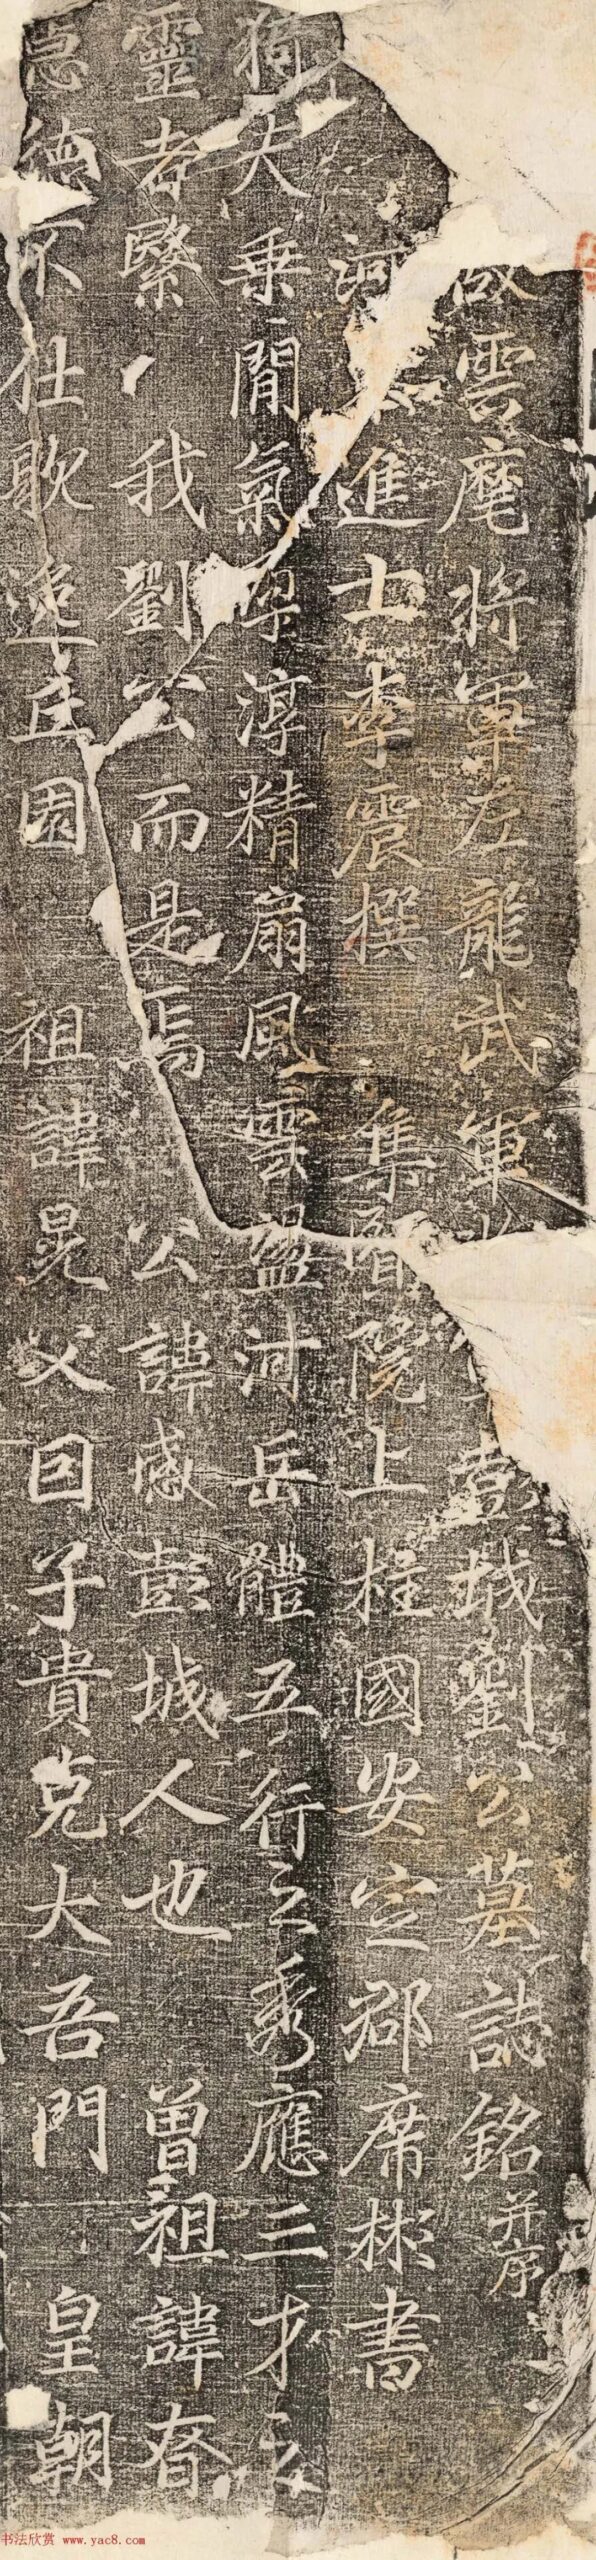 雲麾將軍左龍武軍彭城劉公墓誌銘并序
河進士李震撰 集賢院上柱國安定郡席彬書
猗夫乘閒氣稟淳精扇風雲盪河岳體五行之秀應三才之
靈者繄我劉公而是焉 公諱感彭城人也 曾祖諱奢
德不仕歌逸丘園 祖諱晃父曰子貴克大吾門 皇朝
书法欣赏 www.yac8.com